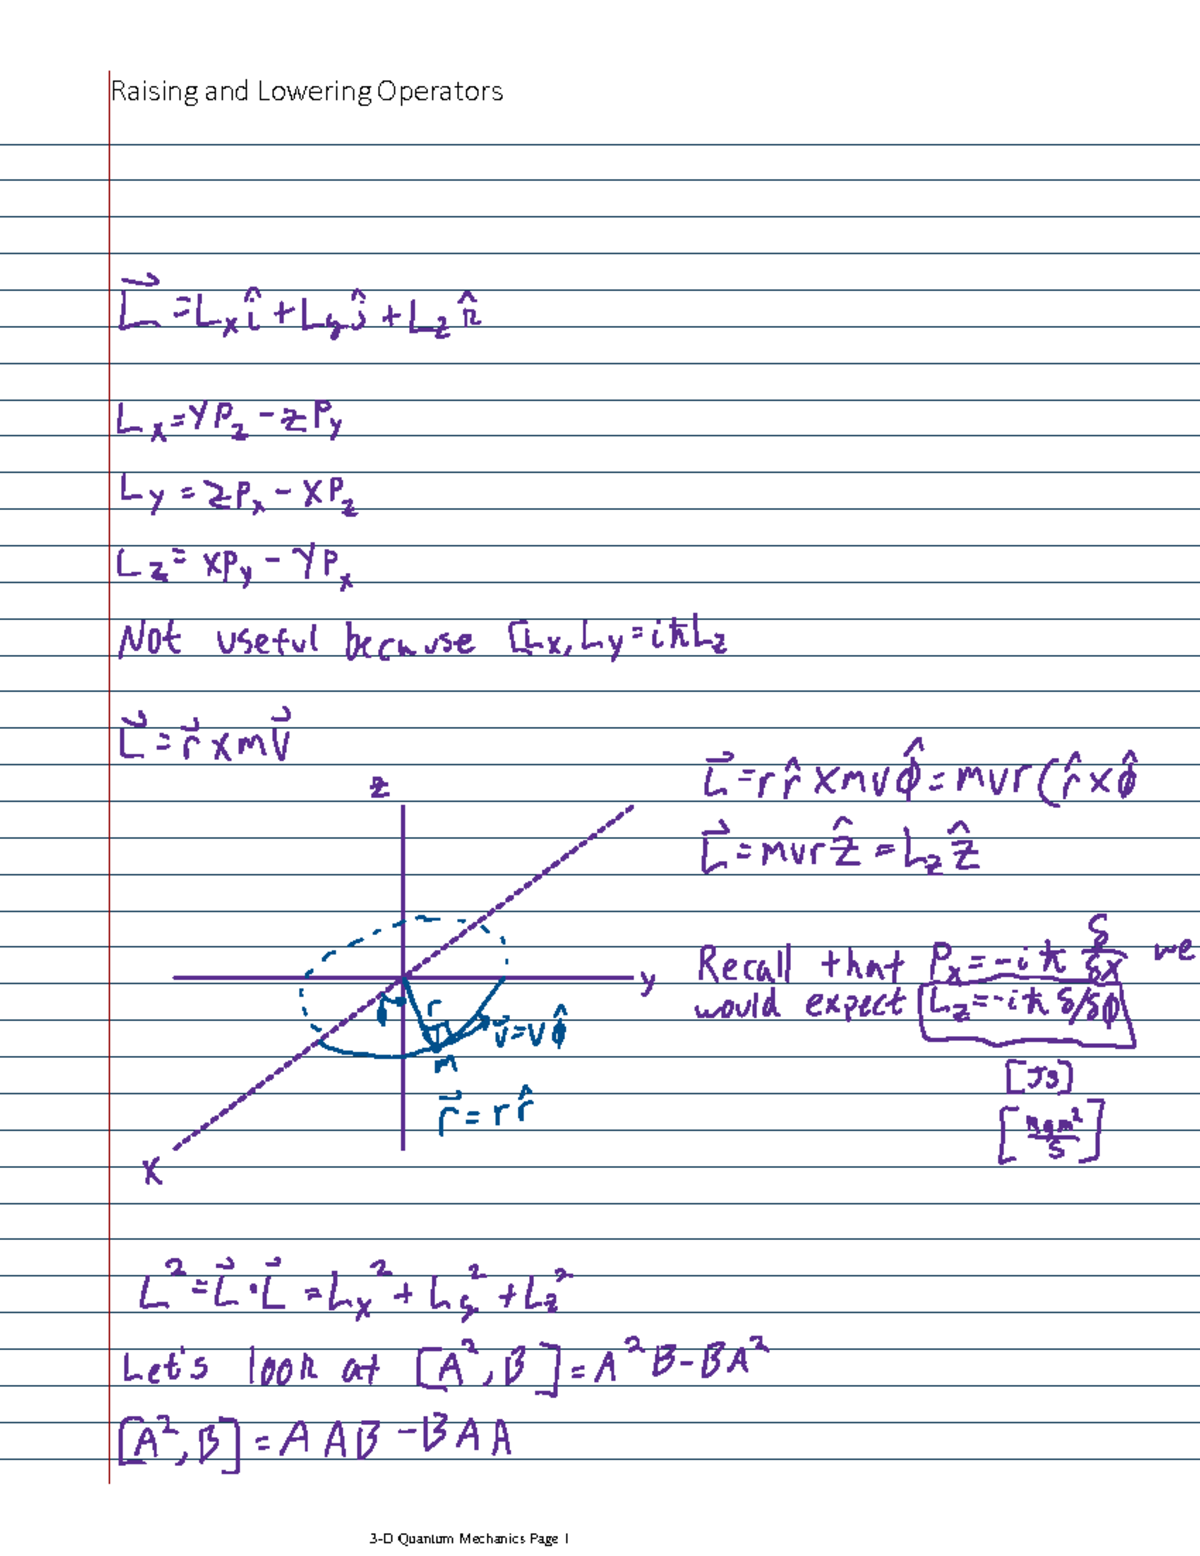 Raising and Lowering Operators
L⃗ = Lₓî + L_yĵ + L_z k̂
Lₓ = YP_z - zP_y
L_y = zPₓ - XP_z
L_z = xP_y - YPₓ
Not useful because [Lₓ, L_y = iħL_z
L⃗ = r⃗ x mv⃗
L⃗ = r r̂ x mvφ̂ = mvr(r̂ x φ̂
L⃗ = mvr ẑ = L_z ẑ
z
y
x
φ
r
v⃗ = vφ̂
m
r⃗ = r r̂
Recall that Pₓ = -iħ δ/δx we
would expect L_z = -iħ δ/δφ
[Js]
[kgm²/s]
L² = L⃗ · L⃗ = Lₓ² + L_y² + L_z²
Let's look at [A², B] = A²B - BA²
[A², B] = AAB - BAA
3-D Quantum Mechanics Page 1